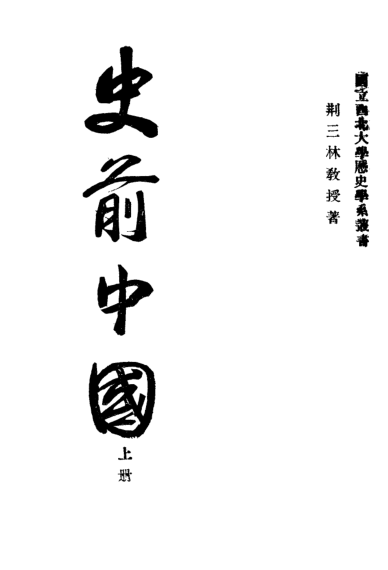 國立西北大學歷史學系叢書
荆三林教授著
史前中國
上册